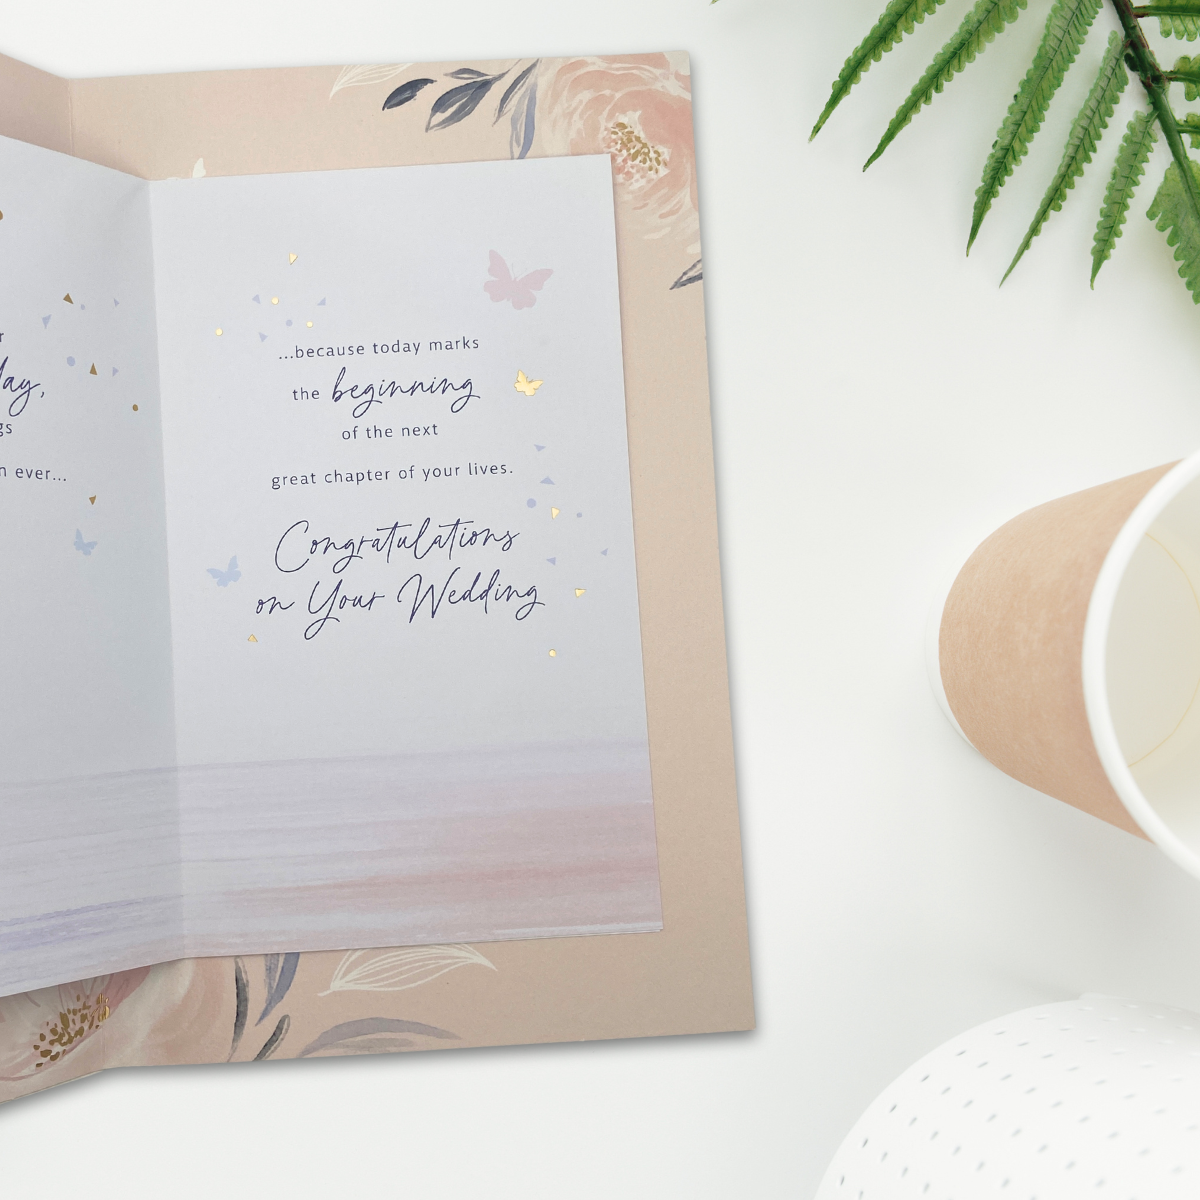 ay,
n ever...
...because today marks
the beginning
of the next
great chapter of your lives.
Congratulations
on Your Wedding